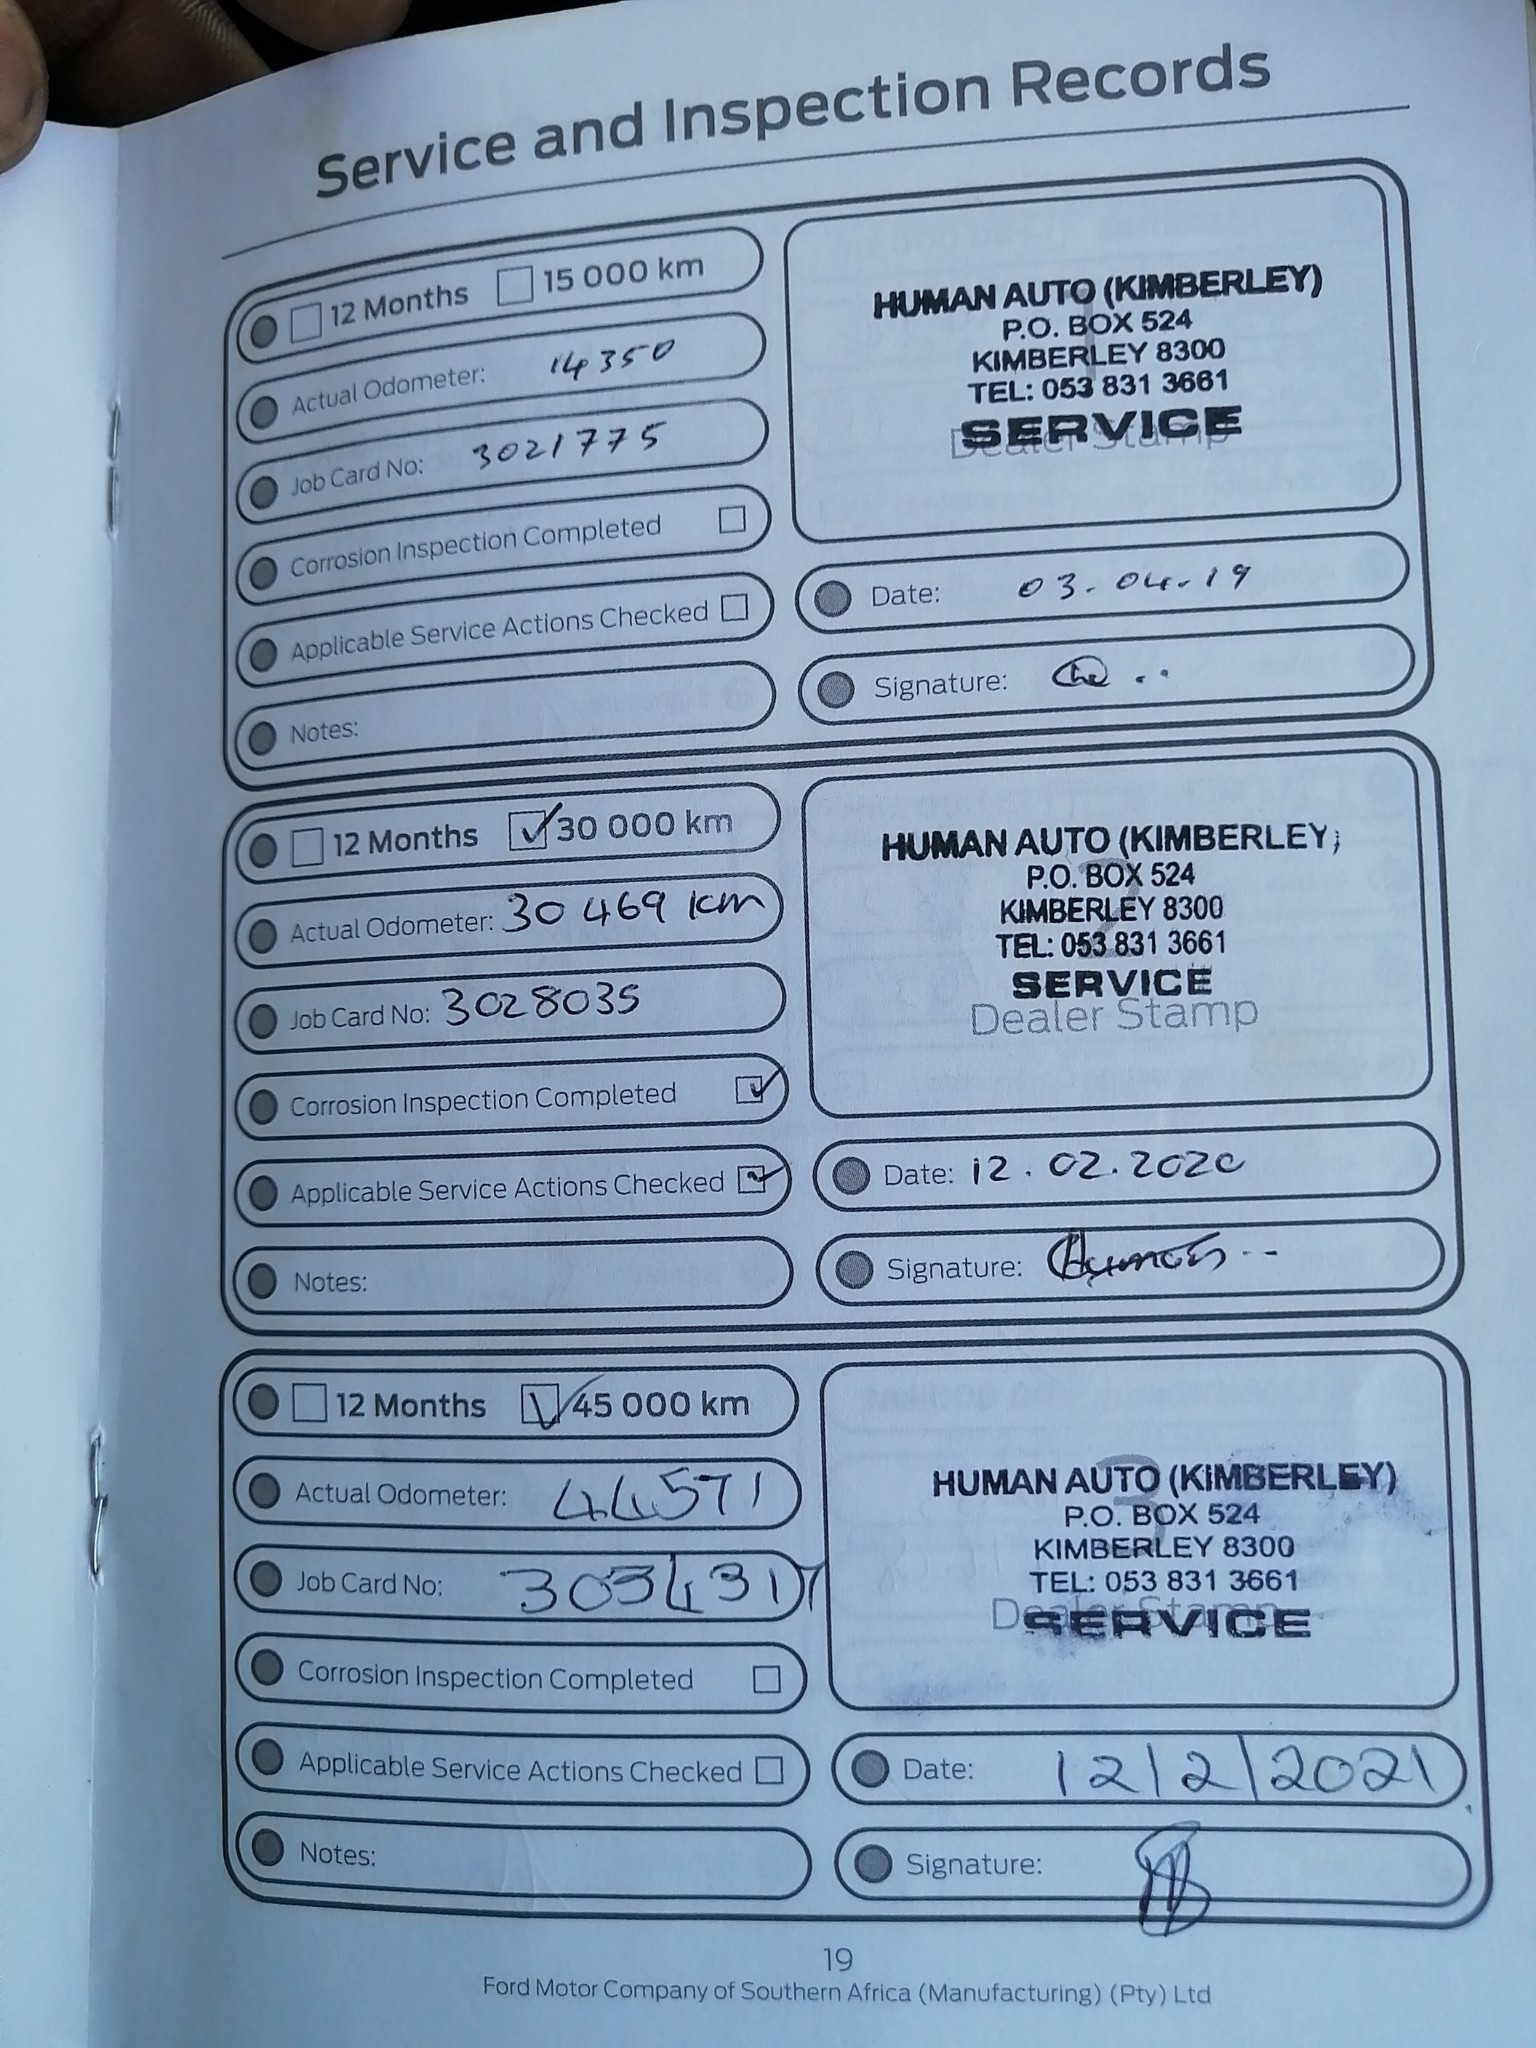 Service and Inspection Records
12 Months 15 000 km
Actual Odometer: 14350
Job Card No: 3021775
Corrosion Inspection Completed
Applicable Service Actions Checked
Notes:
HUMAN AUTO (KIMBERLEY)
P.O. BOX 524
KIMBERLEY 8300
TEL: 053 831 3661
SERVICE
Dealer Stamp
Date: 03.04.19
Signature:
12 Months 30 000 km
Actual Odometer: 30 469 km
Job Card No: 3028035
Corrosion Inspection Completed
Applicable Service Actions Checked
Notes:
HUMAN AUTO (KIMBERLEY)
P.O. BOX 524
KIMBERLEY 8300
TEL: 053 831 3661
SERVICE
Dealer Stamp
Date: 12.02.2020
Signature:
12 Months 45 000 km
Actual Odometer: 44571
Job Card No: 3034317
Corrosion Inspection Completed
Applicable Service Actions Checked
Notes:
HUMAN AUTO (KIMBERLEY)
P.O. BOX 524
KIMBERLEY 8300
TEL: 053 831 3661
SERVICE
Dealer Stamp
Date: 12/2/2021
Signature:
19
Ford Motor Company of Southern Africa (Manufacturing) (Pty) Ltd